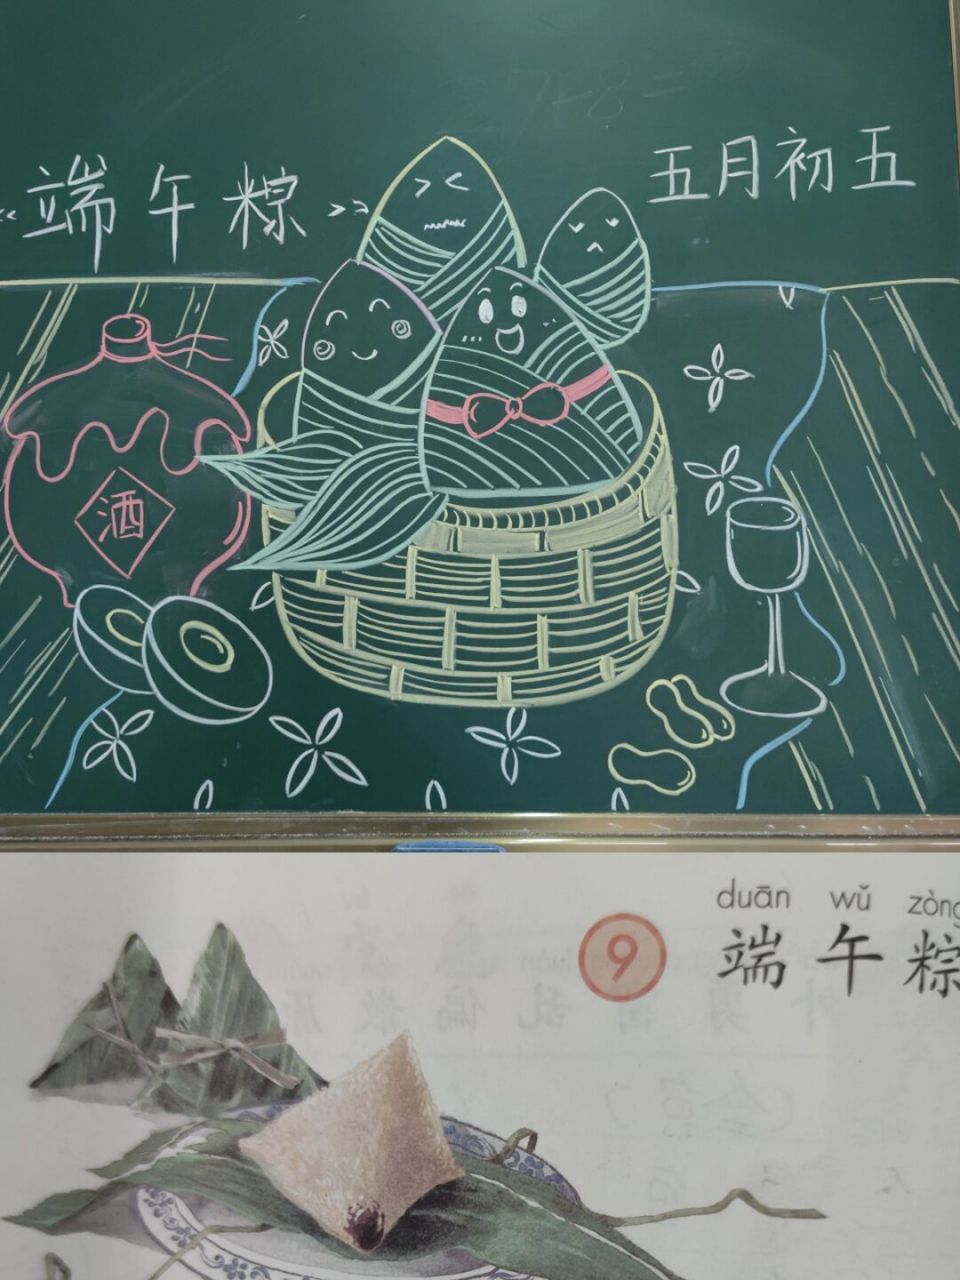 端午粽
五月初五
酒
9
duān wǔ zòng
端午粽